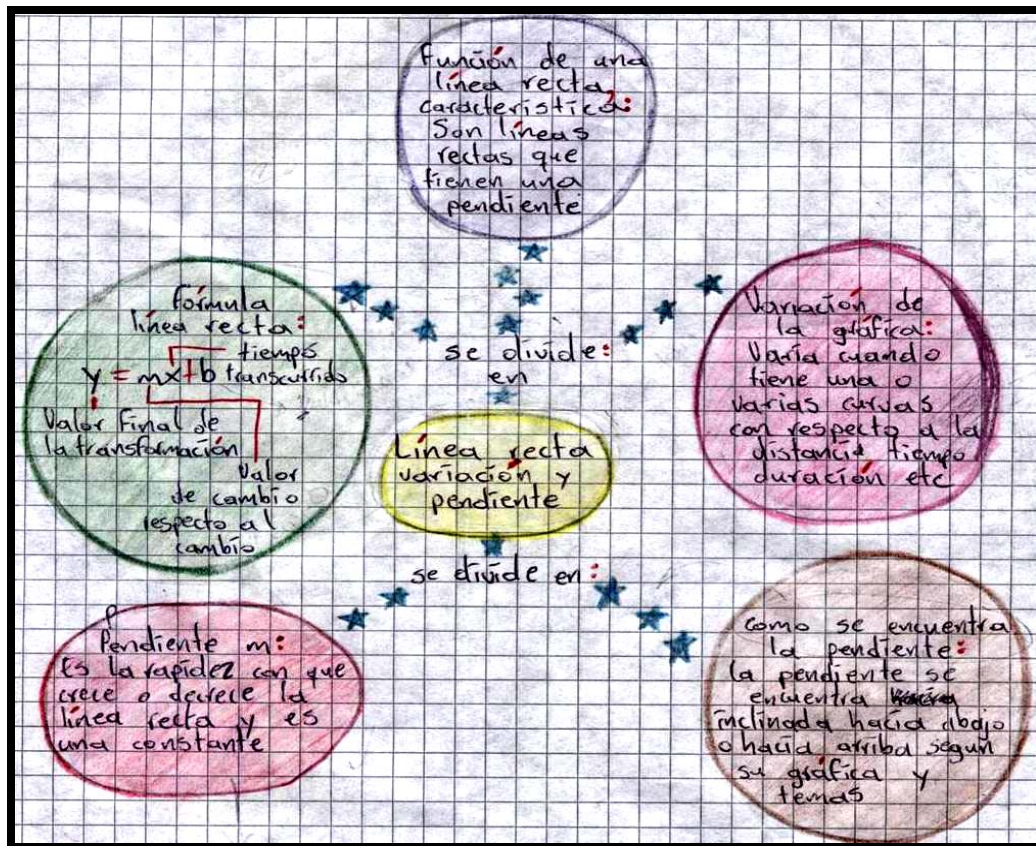 Función de una
línea recta
característica:
Son líneas
rectas que
tienen una
pendiente
fórmula
línea recta:
tiempo
y = mx+b transcurrido
Valor Final de
la transformación
Valor
de cambio
respecto al
cambio
se divide:
en
Variación de
la gráfica:
Varía cuando
tiene una o
varias curvas
con respecto a la
distancia tiempo
duración etc
Línea recta
variación y
pendiente
se divide en:
P
Pendiente m:
Es la rapidez con que
crece o decrece la
línea recta y es
una constante
como se encuentra
la pendiente:
la pendiente se
encuentra
inclinada hacía abajo
o hacía arriba segun
su gráfica y
temas